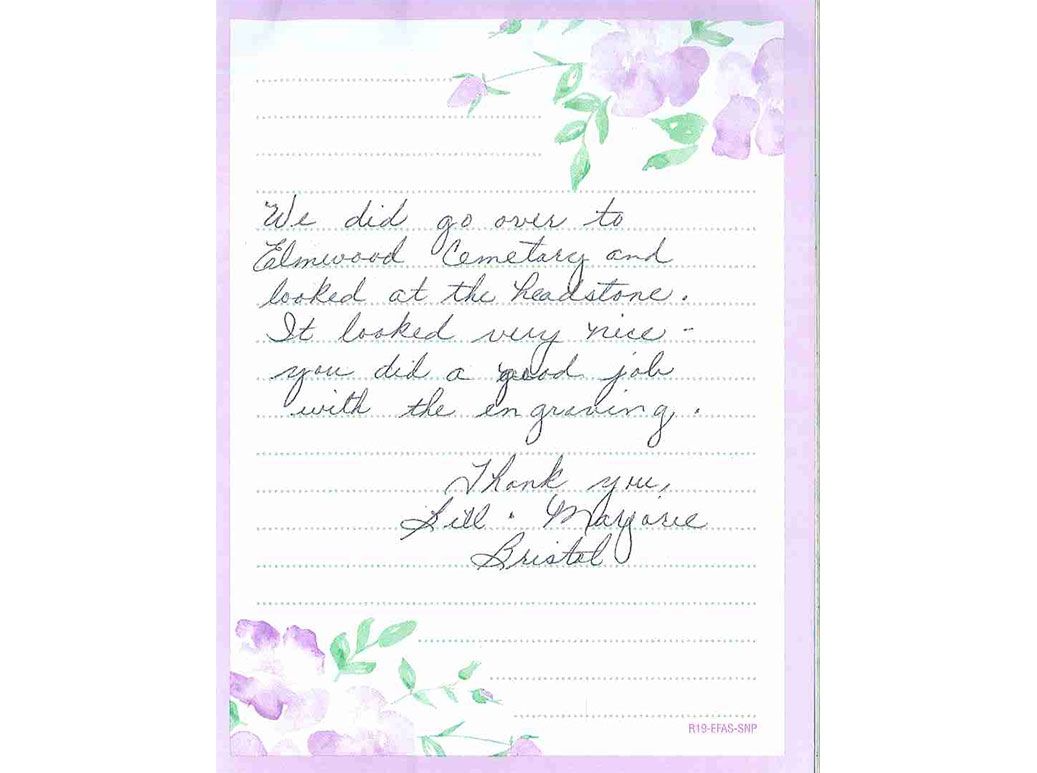 We did go over to
Elmwood Cemetary and
looked at the headstone.
It looked very nice -
you did a good job
with the engraving.
Thank you,
Bill & Marjorie
Bristol
R19-EFAS-SNP